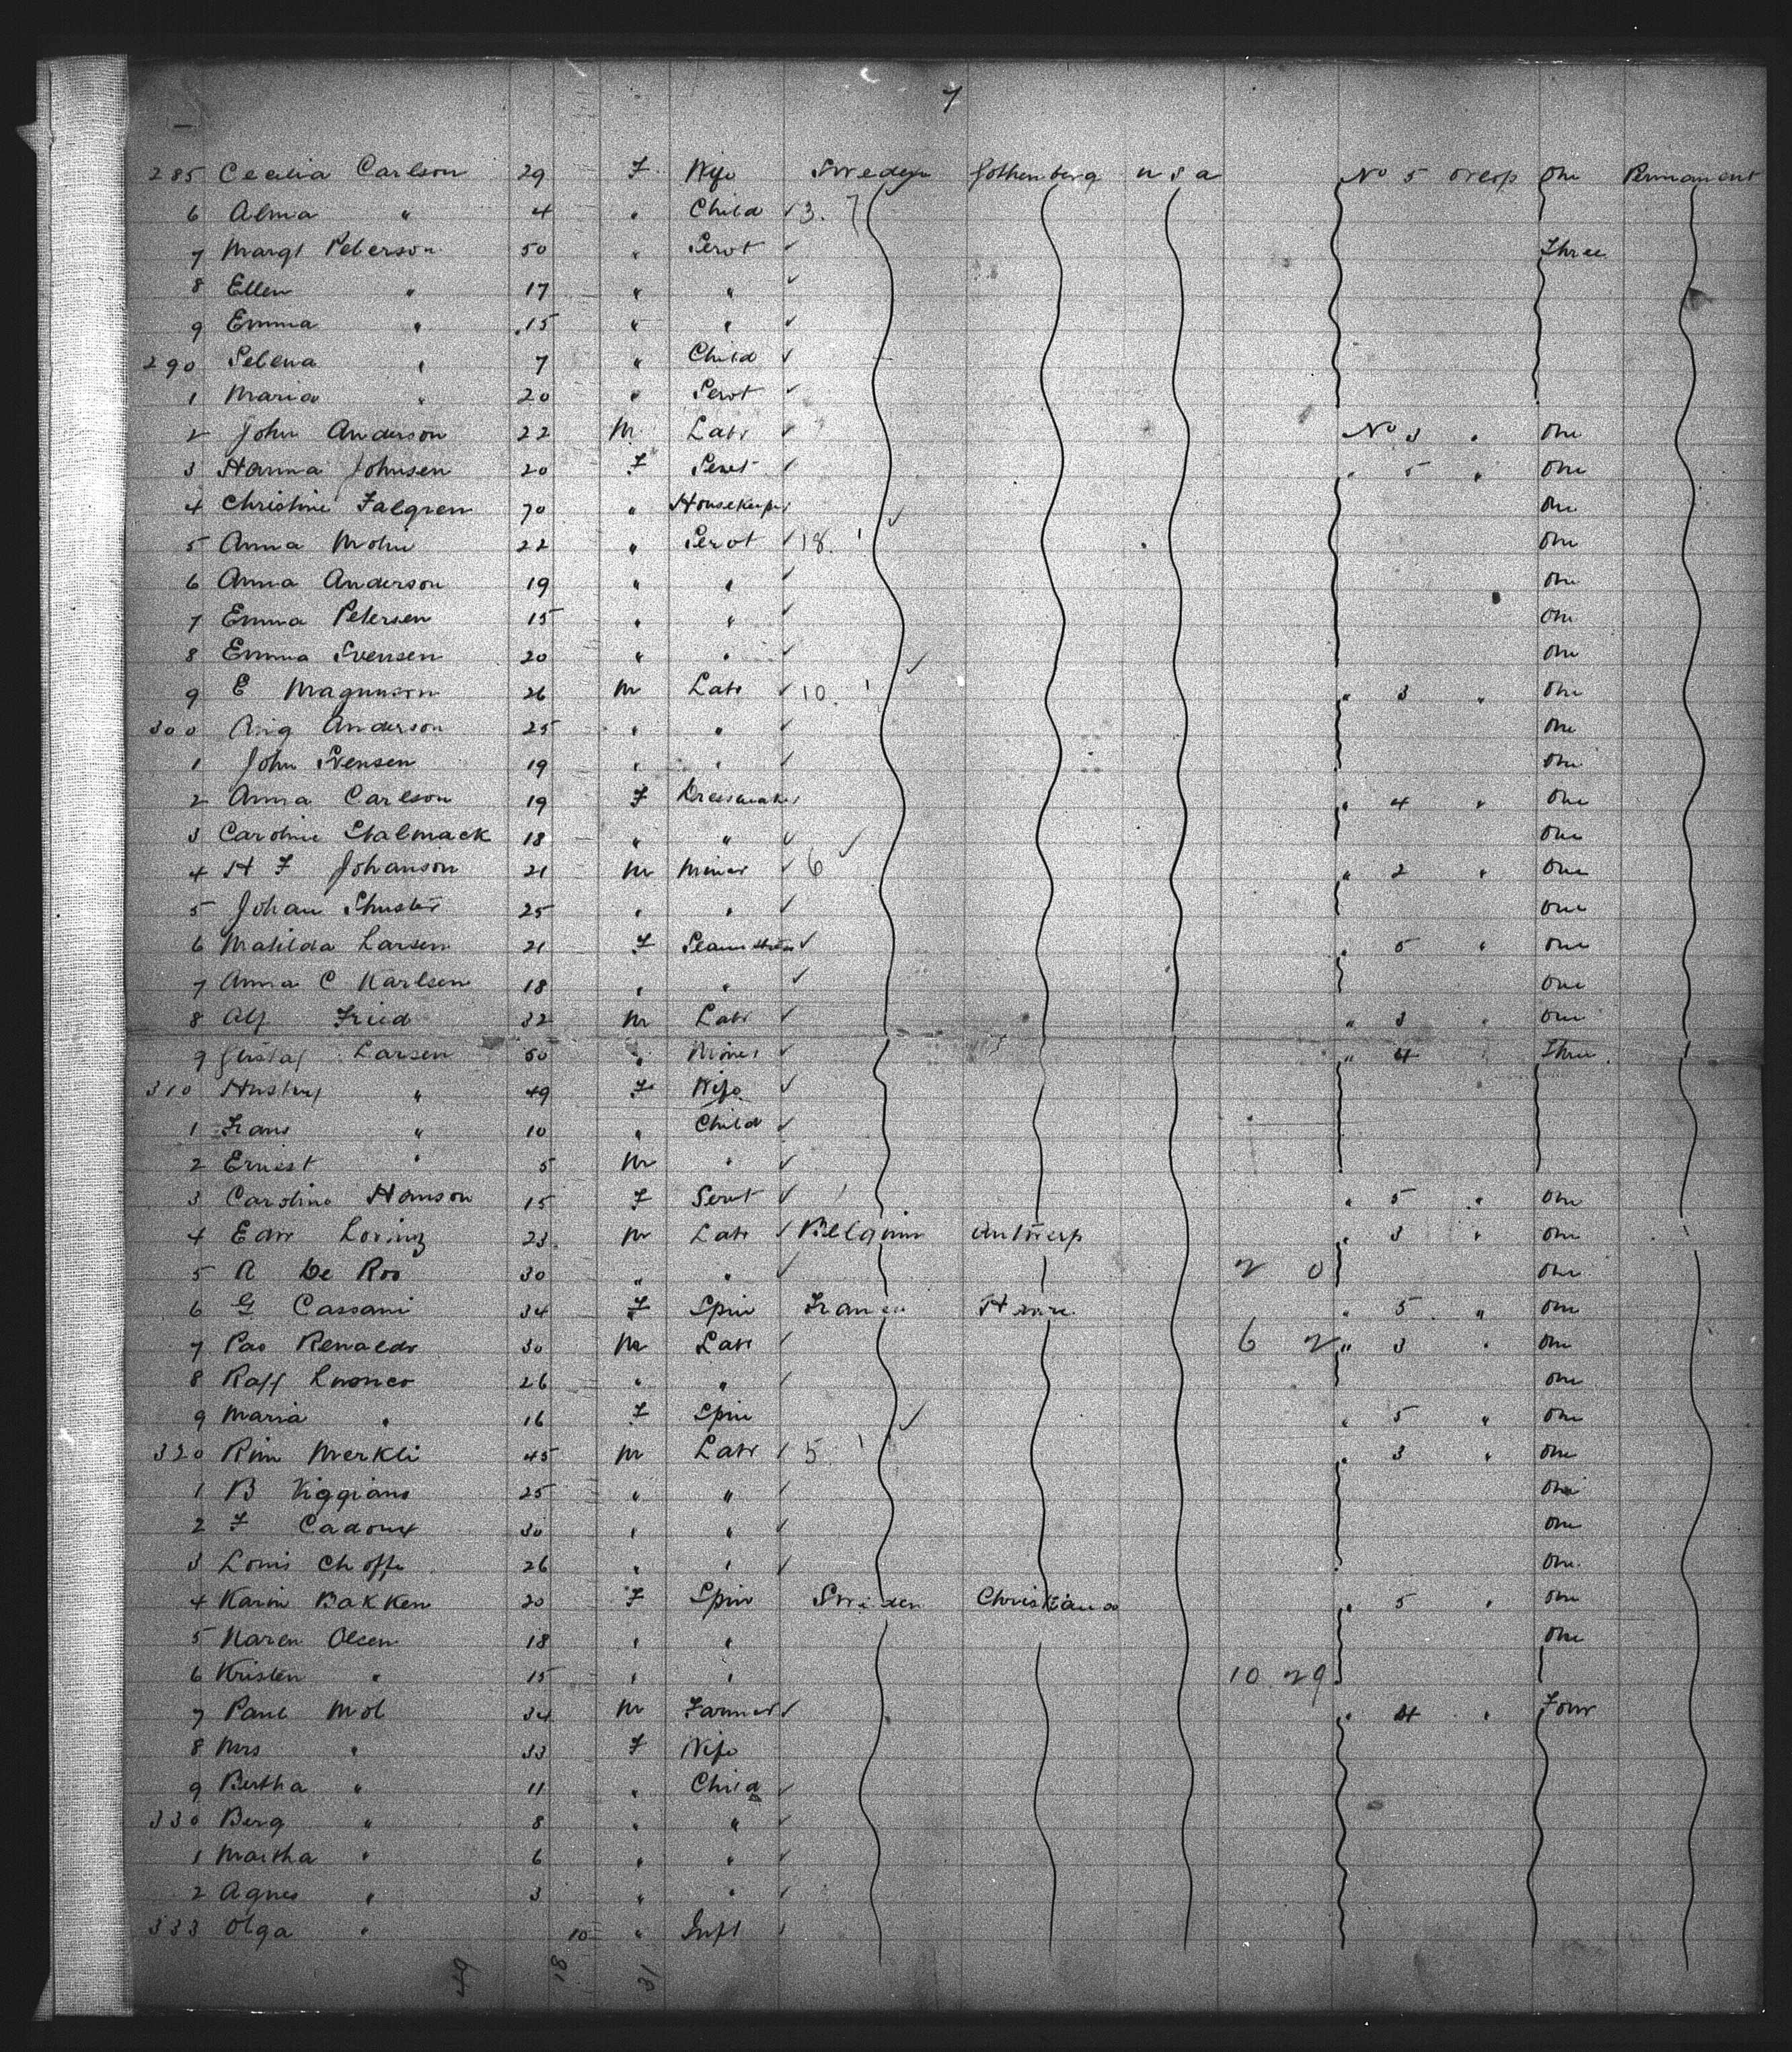 7
285 Cecilia Carlson 29 F Wife Sweden Gothenberg U S A No 5 Orlop One Permanent
6 Alma " 4 " Child ✓ 3. 7
7 Margt Peterson 50 " Servt ✓ Three
8 Ellen " 17 " " ✓
9 Emma " 15 " " ✓
290 Selena " 7 " Child ✓
1 Maria " 20 " Servt ✓
2 John Anderson 22 M Labr ✓ No 3 " One
3 Hanna Johnsen 20 F Servt ✓ " 5 " One
4 Christine Falgren 70 " Housekeeper One
5 Anna Mohn 22 " Servt ✓ 18. 1 One
6 Anna Anderson 19 " " ✓ One
7 Emma Petersen 15 " " ✓ One
8 Emma Svensen 20 " " ✓ One
9 E Magnuson 26 M Labr ✓ 10. 1 " 3 " One
300 Aug Anderson 25 " " ✓ One
1 John Svensen 19 " " ✓ One
2 Anna Carlson 19 F Dressmaker " 4 " One
3 Caroline Stalmack 18 " " ✓ One
4 H F Johanson 21 M Miner ✓ 6 " 2 " One
5 Johan Shuster 25 " " ✓ One
6 Matilda Larsen 21 F Seamstress ✓ " 5 " One
7 Anna C Karlsen 18 " " ✓ One
8 Alf Fried 32 M Labr ✓ " 3 " One
9 Gustaf Larsen 50 " Miner ✓ " 4 " Three
310 " 49 F Wife ✓
1 Frans " 10 " Child ✓
2 Ernest " 5 M " ✓
3 Caroline Hanson 15 F Servt ✓ " 5 " One
4 Edw Loring 23 M Labr ✓ Belgium Antwerp " 3 " One
5 A De Roo 30 " " ✓ 2 0 One
6 G Cassani 34 F Spin France Havre " 5 " One
7 Pao Renaldo 30 M Labr ✓ 6 2 " 3 " One
8 Raff 26 " " ✓ One
9 Maria " 16 F Spin " 5 " One
320 Rim Merkli 45 M Labr ✓ 5. 1 " 3 " One
1 B Viggiano 25 " " ✓ One
2 F Cadoux 30 " " ✓ One
3 Louis Choffe 26 " " ✓ One
4 Karin Bakken 20 F Spin Sweden Christiana " 5 " One
5 Karen Olsen 18 " " One
6 Kristen " 15 " " 10 29
7 Paul Mol 34 M Farmer ✓ " 4 " Four
8 Mrs " 33 F Wife
9 Bertha " 11 " Child ✓
330 Berg " 8 " " ✓
1 Martha " 6 " " ✓
2 Agnes " 3 " " ✓
333 Olga " 10 " Inft ✓
49 18 31